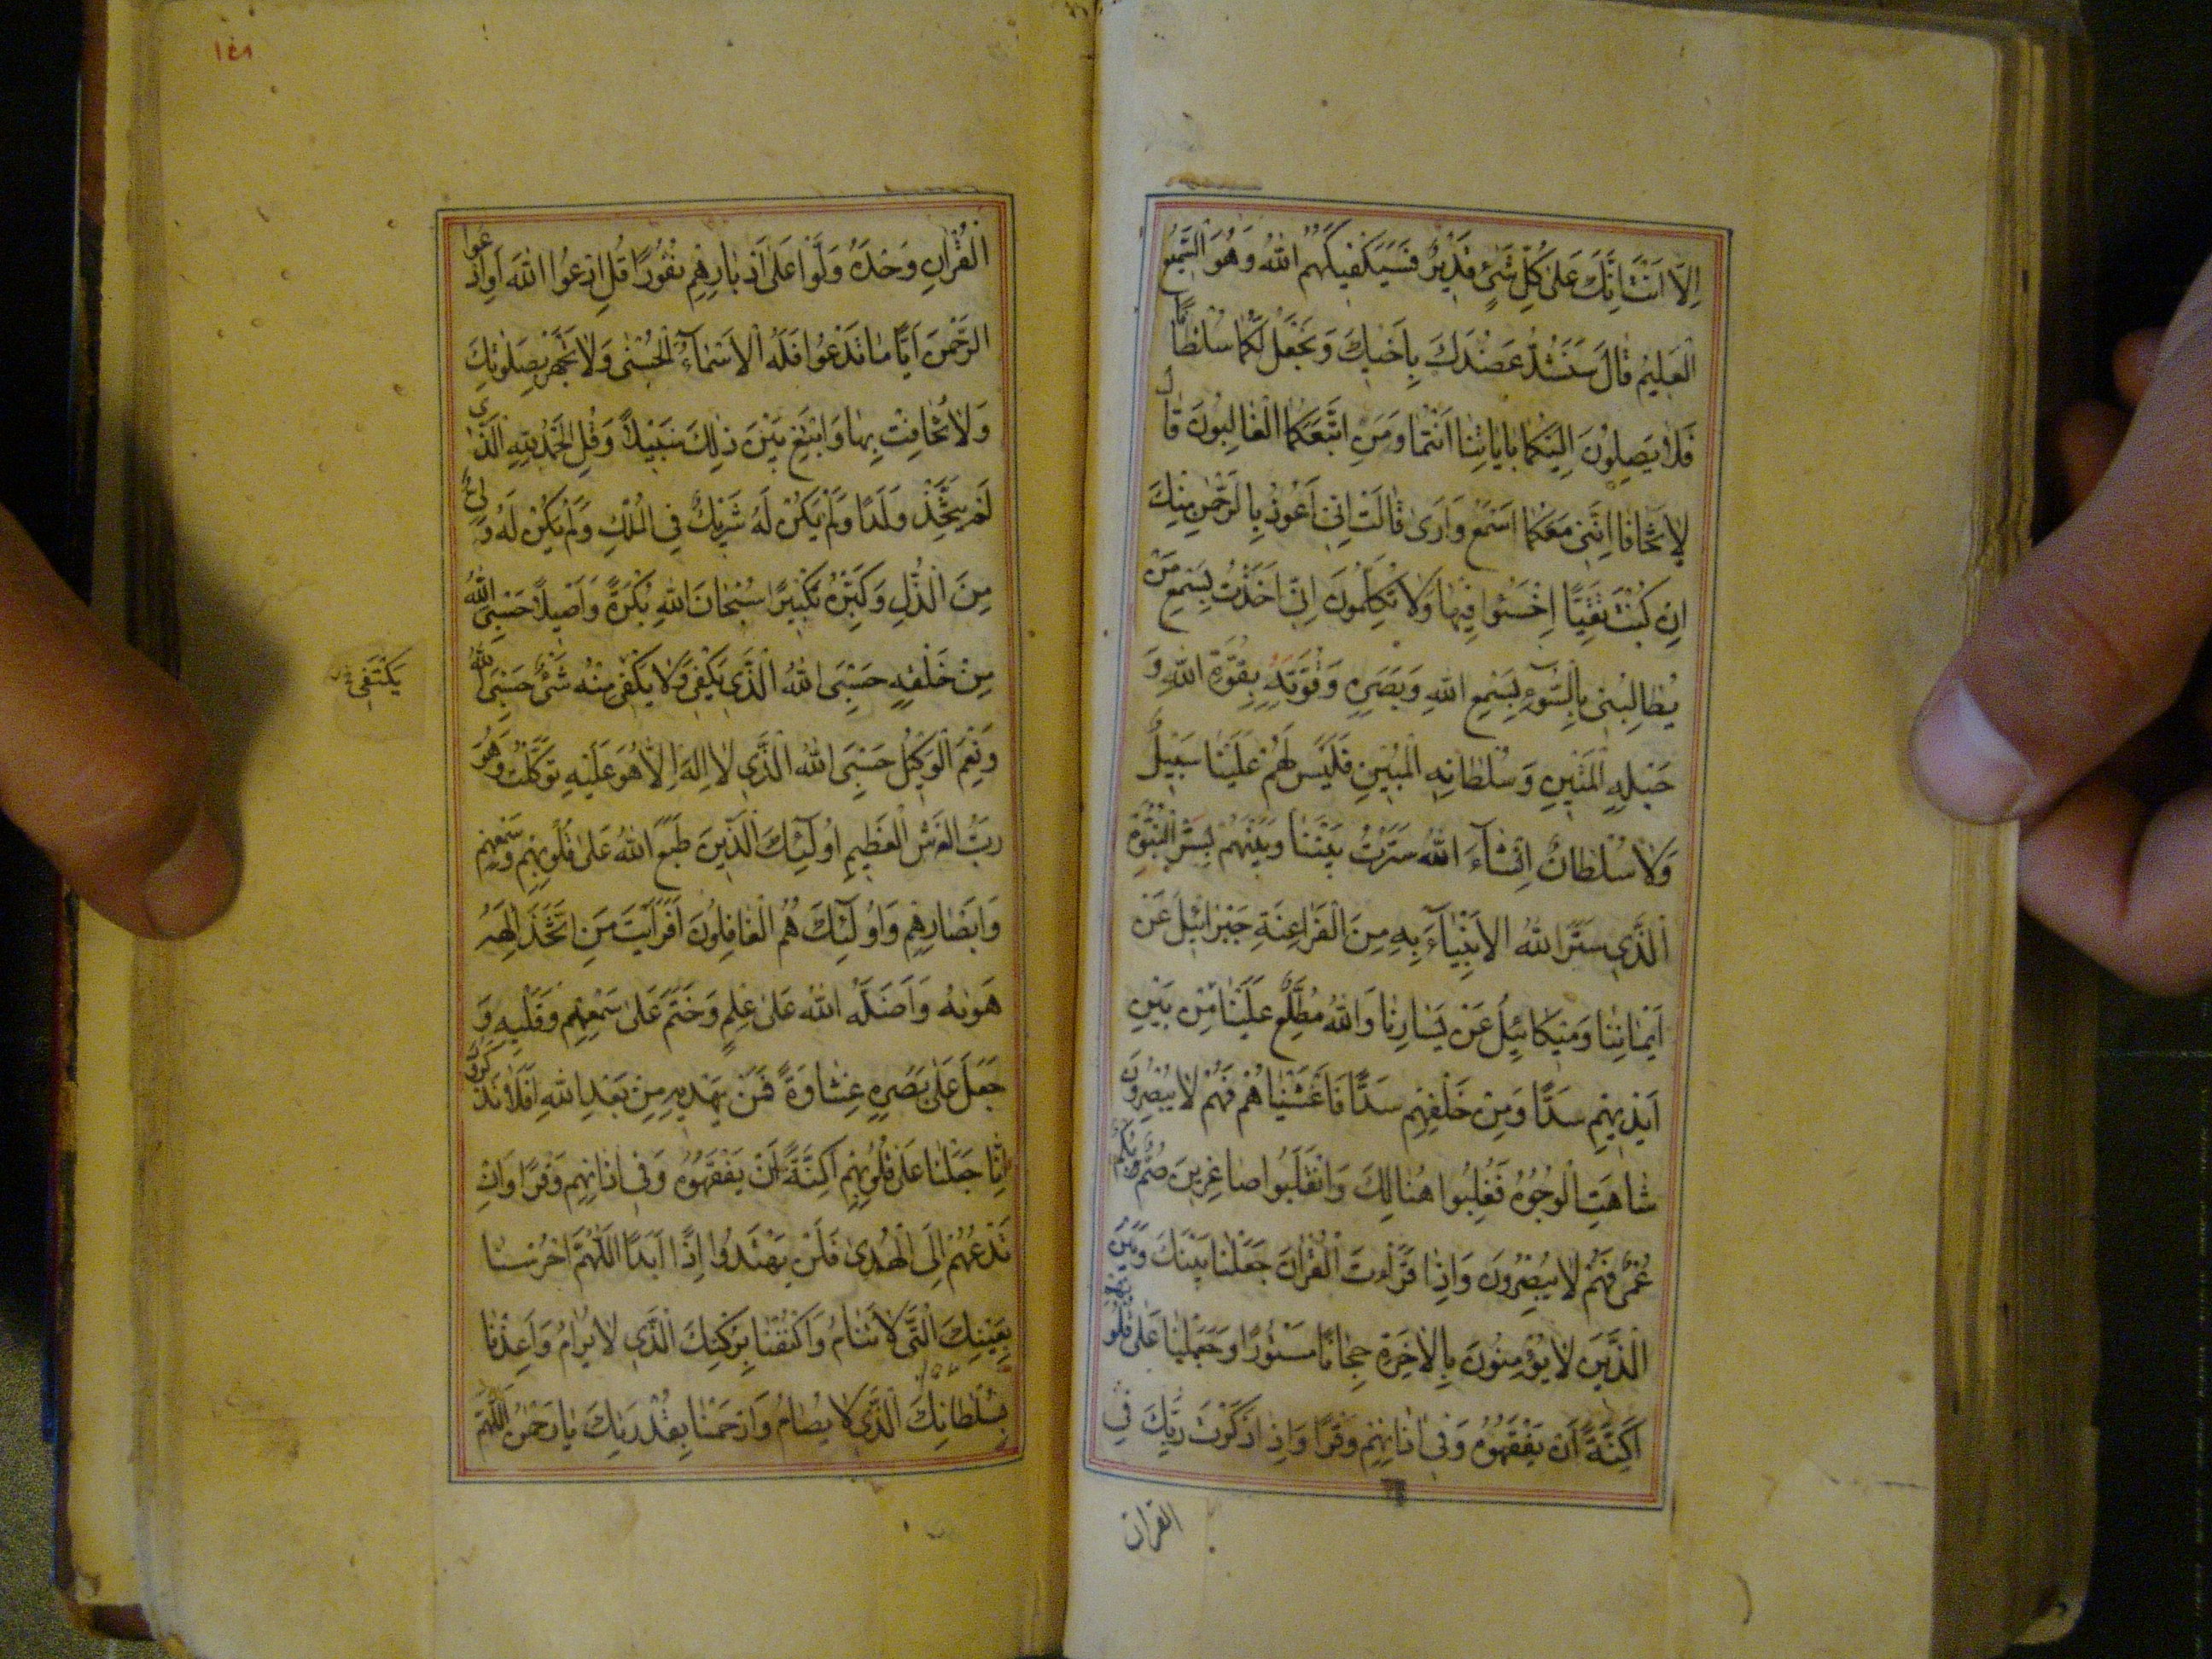 اِلَّا اَنْتَ اِنَّكَ عَلىٰ كُلِّ شَيْئٍ قَدِيْرٌ فَسَيَكْفِيكَهُمُ اللهُ وَهُوَ السَّمِيْعُ
الْعَلِيْمُ قٰالَ سَنَشُدُّ عَضُدَكَ بِاَخْيكَ وَنَجْعَلُ لَكُمٰا سُلْطٰانًا
فَلٰا يَصِلُوْنَ اِلَيْكُمٰا بِاٰيٰاتِنٰا اَنْتُمٰا وَمَنِ اتَّبَعَكُمٰا الْغٰالِبُوْنَ قٰالَ
لاٰ تَخٰافٰا اِنَّنِى مَعَكُمٰا اَسْمَعُ وَاَرىٰ قٰالَتْ اِنِّى اَعُوْذُ بِالرَّحْمٰنِ مِنْكَ
اِنْ كُنْتَ تَقِيًّا اِخْسَئُوا فِيْهٰا وَلاٰ تُكَلِّمُونِ اِنِّى اَخَذْتُ بِسَمْعِ مَنْ
يُطٰالِبُنِى بِالسُّوْءِ بِسَمْعِ اللهِ وَبَصَرِهِ وَقُوَّتِهِ بِقُوَّةِ اللهِ وَ
حَبْلِهِ الْمَتْيِنِ وَسُلْطٰانِهِ الْمُبْيِنِ فَلَيْسَ لَهُمْ عَلَيْنٰا سَبْيِلٌ
وَلاٰ سُلْطٰانٌ اِنْشٰآءَ اللهُ سَتَرْتُ بَيْنَنٰا وَبَيْنَهُمْ بِسِتْرِ النُّبُوَّةِ
الَّذِى سَتَرَ اللهُ الاَنْبِيٰآءَ بِهِ مِنَ الْفَرٰاعِنَةِ جَبْرَائْيِلَ عَنْ
اَيْمٰانِنٰا وَمِيْكٰائِيلَ عَنْ يَسٰارِنٰا وَاللهُ مُطَّلِعٌ عَلَيْنٰا مِنْ بَيْنِ
اَيْدِيْهِمْ سَدًّا وَمِنْ خَلْفِهِمْ سَدًّا فَاَغْشَيْنٰاهُمْ فَهُمْ لاٰ يُبْصِرُونَ
شٰاهَتِ الْوُجُوْهُ فَغُلِبُوا هُنٰالِكَ وَانْقَلَبُوا صٰاغِرِينَ صُمٌّ بُكْمٌ
عُمْىٌ فَهُمْ لاٰ يُبْصِرُونَ وَاِذٰا قَرَأْتَ الْقُرْاٰنَ جَعَلْنٰا بَيْنَكَ وَبَيْنَ
الَّذِيْنَ لاٰ يُؤْمِنُوْنَ بِالاٰخِرَةِ حِجٰابًا مَسْتُوْرًا وَجَعَلْنٰا عَلىٰ قُلُوبِهِمْ
اَكِنَّةً اَنْ يَفْقَهُوْهُ وَفِى اٰذٰانِهِمْ وَقْرًا وَاِذٰا ذَكَرْتَ رَبَّكَ فِى
القرآن
١٤٨
الْقُرْاٰنِ وَحْدَهُ وَلَّوْا عَلىٰ اَدْبٰارِهِمْ نُفُوْرًا قُلِ ادْعُوا اللهَ اَوِ ادْعُوا
الرَّحْمٰنَ اَيًّا مٰا تَدْعُوا فَلَهُ الْاَسْمٰآءُ الْحُسْنىٰ وَلاٰ تَجْهَرْ بِصَلٰوتِكَ
وَلاٰ تُخٰافِتْ بِهٰا وَابْتَغِ بَيْنَ ذٰلِكَ سَبْيِلاً وَقُلِ الْحَمْدُ لِلّٰهِ الَّذِى
لَمْ يَتَّخِذْ وَلَدًا وَلَمْ يَكُنْ لَهُ شَرِيْكٌ فِى الْمُلْكِ وَلَمْ يَكُنْ لَهُ وَلِىٌّ
مِنَ الذُّلِّ وَكَبِّرْهُ تَكْبِيْرًا سُبْحٰانَ اللهِ بُكْرَةً وَاَصْيِلاً حَسْبِىَ اللهُ
مِنْ خَلْقِهِ حَسْبِىَ اللهُ الَّذِى يَكْفِى وَلاٰ يَكْفِى مِنْهُ شَيْئٌ حَسْبِىَ اللهُ
يَكْتَفِى
وَنِعْمَ الْوَكِيْلُ حَسْبِىَ اللهُ الَّذِى لاٰ اِلٰهَ اِلاّٰ هُوَ عَلَيْهِ تَوَكَّلْتُ وَهُوَ
رَبُّ الْعَرْشِ الْعَظِيْمِ اُولٰٓئِكَ الَّذِيْنَ طَبَعَ اللهُ عَلىٰ قُلُوبِهِمْ وَسَمْعِهِمْ
وَاَبْصٰارِهِمْ وَاُولٰٓئِكَ هُمُ الْغٰافِلُوْنَ اَفَرَاَيْتَ مَنِ اتَّخَذَ اِلٰهَهُ
هَوٰيهُ وَاَضَلَّهُ اللهُ عَلىٰ عِلْمٍ وَخَتَمَ عَلىٰ سَمْعِهِمْ وَقَلْبِهِ وَ
جَعَلَ عَلىٰ بَصَرِهِ غِشٰاوَةً فَمَنْ يَهْدِيهِ مِنْ بَعْدِ اللهِ اَفَلاٰ تَذَكَّرُونَ
اِنّٰا جَعَلْنٰا عَلىٰ قُلُوْبِهِمْ اَكِنَّةً اَنْ يَفْقَهُوْهُ وَفِى اٰذٰانِهِمْ وَقْرًا وَاِنْ
تَدْعُهُمْ اِلَى الْهُدىٰ فَلَنْ يَهْتَدُوا اِذًا اَبَدًا اَللّٰهُمَّ احْرُسْنٰا
بِعَيْنِكَ الَّتِى لاٰ تَنٰامُ وَاكْنُفْنٰا بِرُكْنِكَ الَّذِى لاٰ يُرٰامُ وَاَعِذْنٰا
بِسُلْطٰانِكَ الَّذِى لاٰ يُضٰامُ وَارْحَمْنٰا بِقُدْرَتِكَ يٰا رَحْمٰنُ اللّٰهُمَّ